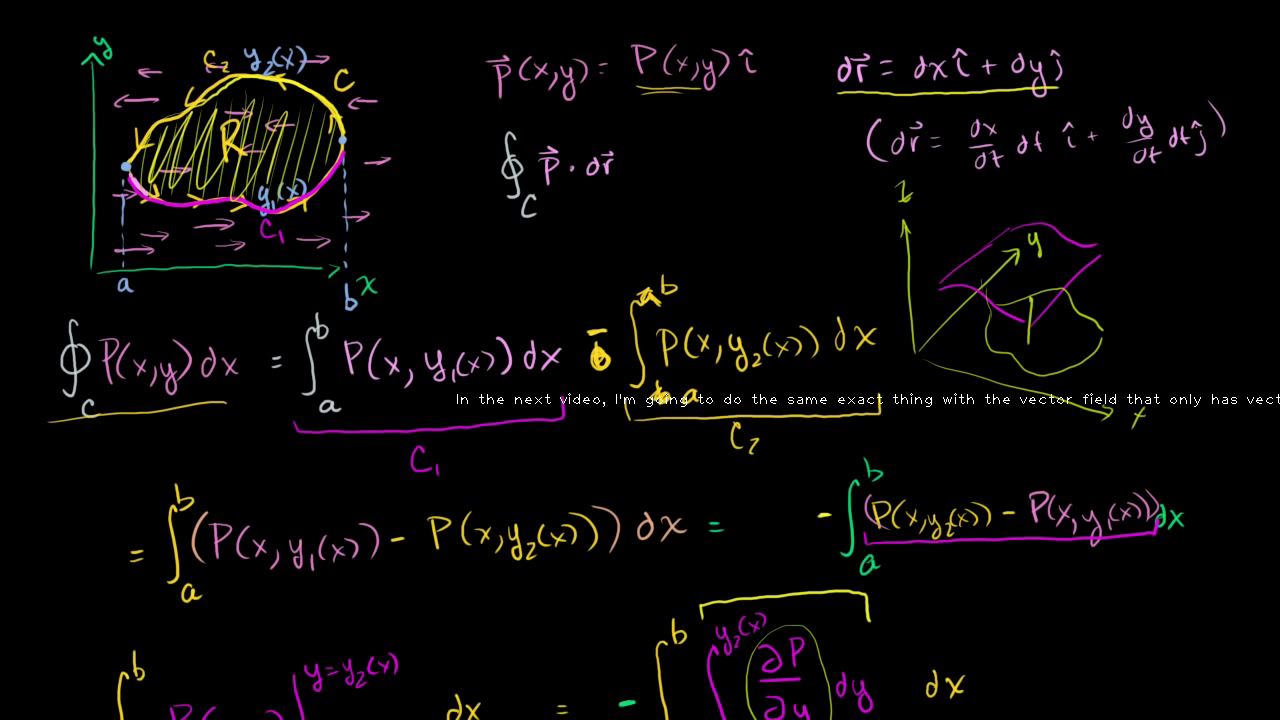 y
C₂ y₂(x) C
R
y₁(x)
C₁
a b x
p⃗(x,y) = P(x,y) î
dr⃗ = dx î + dy ĵ
(dr⃗ = dx/dt dt î + dy/dt dt ĵ)
∮_C p⃗ · dr⃗
z
y
x
∮_C P(x,y) dx = ∫_a^b P(x, y₁(x)) dx - ∫_a^b P(x, y₂(x)) dx
In the next video, I'm going to do the same exact thing with the vector field that only has vect
C₁ C₂
= ∫_a^b (P(x, y₁(x)) - P(x, y₂(x))) dx = - ∫_a^b (P(x, y₂(x)) - P(x, y₁(x))) dx
b y = y₂(x) dx = - ∫^b ∫^y₂(x) ∂P/∂y dy dx